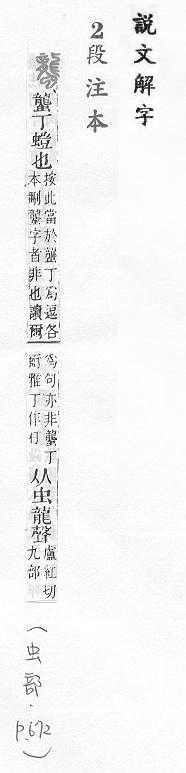 說文解字
2段注本
蠪丁螘也按此當於蠪丁爲逗各本刪蠪字者非也讀爾
爲句亦非蠪丁爾雅丁作朾从虫龍聲盧紅切九部
(虫部．p.672)